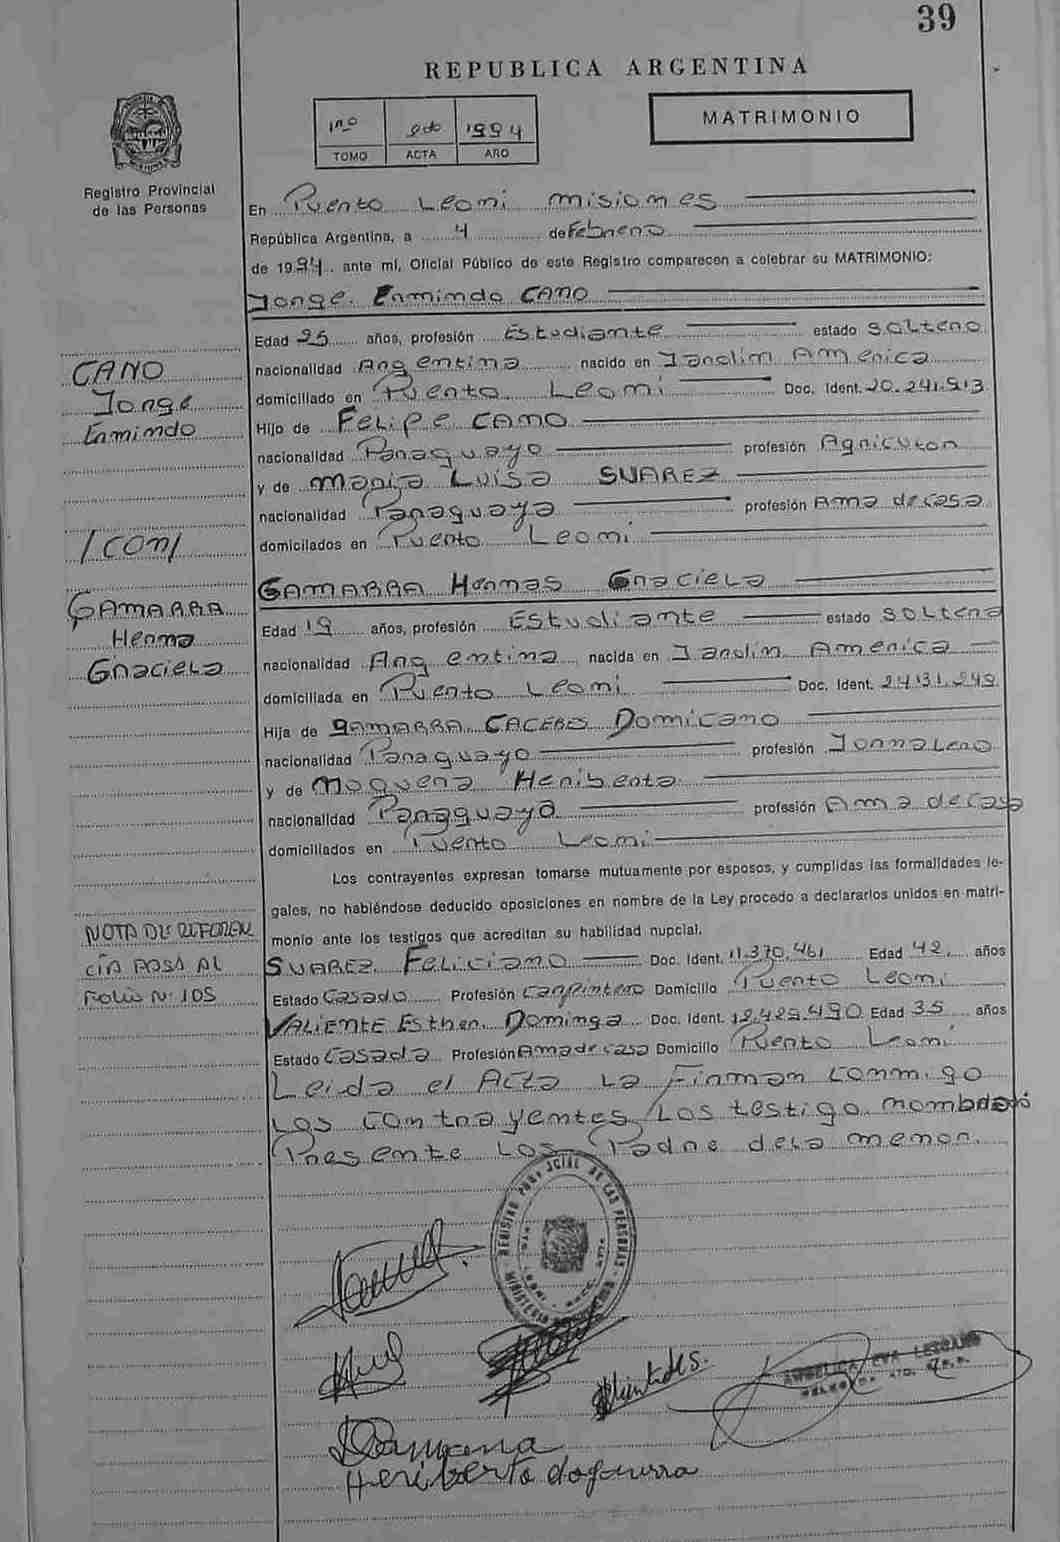 39
REPUBLICA ARGENTINA
MATRIMONIO
1ro 1994
TOMO ACTA AÑO
Registro Provincial
de las Personas
En Puerto Leoni misiones
República Argentina, a 4 de Febrero
de 1994 ante mí, Oficial Público de este Registro comparecen a celebrar su MATRIMONIO:
Jorge Ermindo CANO
Edad 25 años, profesión Estudiante estado SOLTERO
nacionalidad Argentina nacido en Jardin America
domiciliado en Puerto Leoni Doc. Ident. 20.241.913
Hijo de FELIPE CANO
nacionalidad Paraguayo profesión Agricutor
y de Maria Luisa SUAREZ
nacionalidad Paraguaya profesión Ama de casa
domicilados en Puerto Leoni
CANO
Jorge
Ermindo
/CON/
GAMARRA
Herma
Graciela
GAMARRA Hermas Graciela
Edad 19 años, profesión Estudiante estado soltera
nacionalidad Argentina nacida en Jardin America
domiciliada en Puerto Leoni Doc. Ident.
Hija de GAMARRA CACERES Domicano
nacionalidad Paraguayo profesión Jornalero
y de Noguera Heriberta
nacionalidad Paraguaya profesión Ama de casa
domiciliados en Puerto Leoni
Los contrayentes expresan tomarse mutuamente por esposos, y cumplidas las formalidades le-
gales, no habiéndose deducido oposiciones en nombre de la Ley procedo a declararlos unidos en matri-
monio ante los testigos que acreditan su habilidad nupcial.
NOTA DE REFEREN
CIA PASA AL
Folio Nº 105
SUAREZ Feliciano Doc. Ident. 11.370.461 Edad 42 años
Estado Casado Profesión Carpintero Domicilio Puerto Leoni
VALIENTE Esther Dominga Doc. Ident. 12.429.490 Edad 35 años
Estado Casada Profesión Ama de casa Domicilio Puerto Leoni
Leida el Acta La Firman conmigo
Los contrayentes, Los testigo nombrado
Presente Los Padre dela menor.
REGISTRO PROVINCIAL DE LAS PERSONAS
ANGELICA EVA LEZCANO
Heriberta